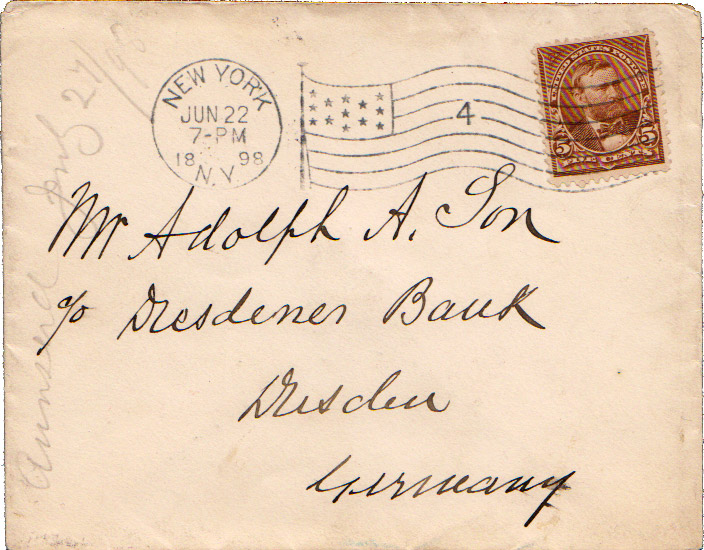 NEW YORK
JUN 22
7-PM
1898
N.Y.
4
UNITED STATES POSTAGE
5 5
FIVE CENTS
Mr Adolph A. Son
c/o Dresdener Bank
Dresden
Germany
Answered July 27/98